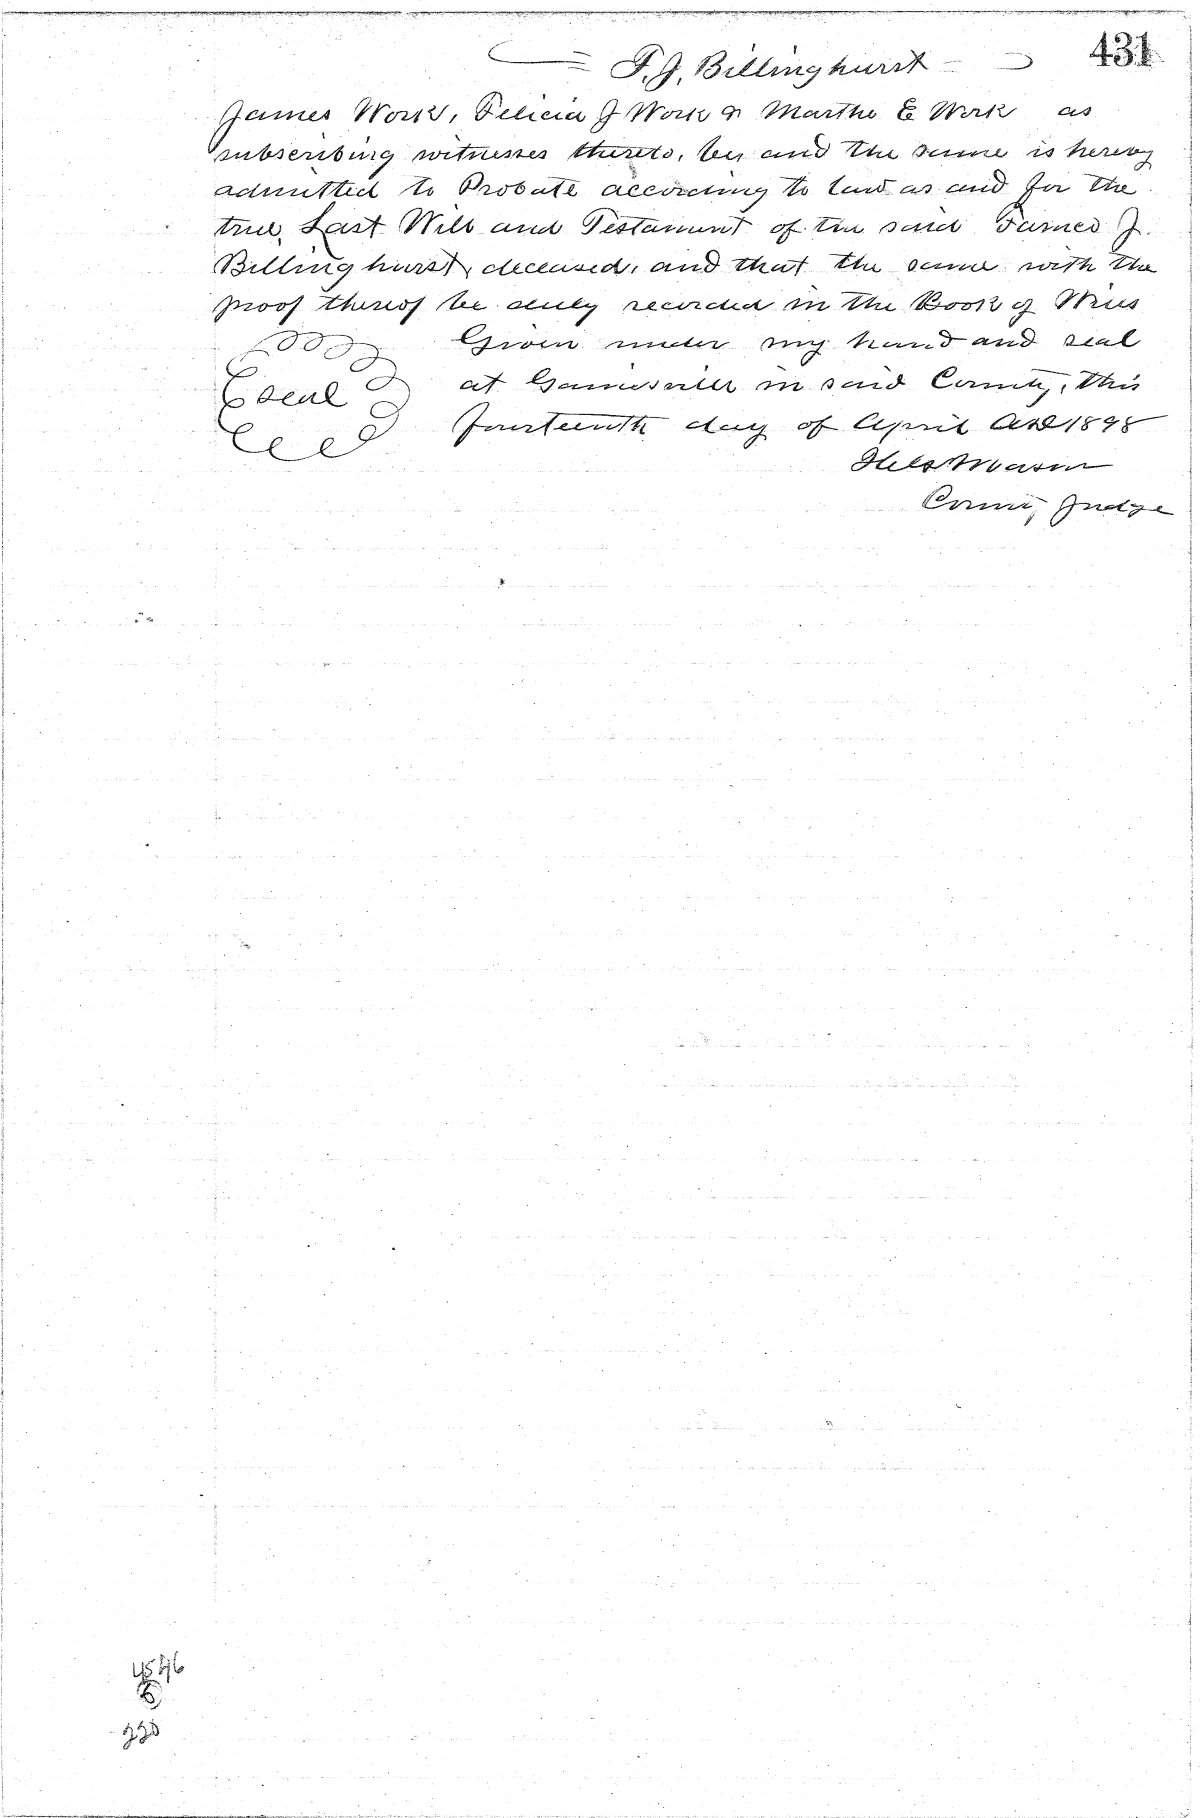 431
F. J. Billinghurst
James Work, Felicia J Work & Martha E Work as
subscribing witnesses thereto, be, and the same is hereby
admitted to Probate according to law as and for the
true, Last Will and Testament of the said James J.
Billinghurst, deceased, and that the same with the
proof thereof be duly recorded in the Book of Wills
Given under my hand and seal
Seal
at Gainesville in said County, this
fourteenth day of April AD 1898
Mason
County Judge